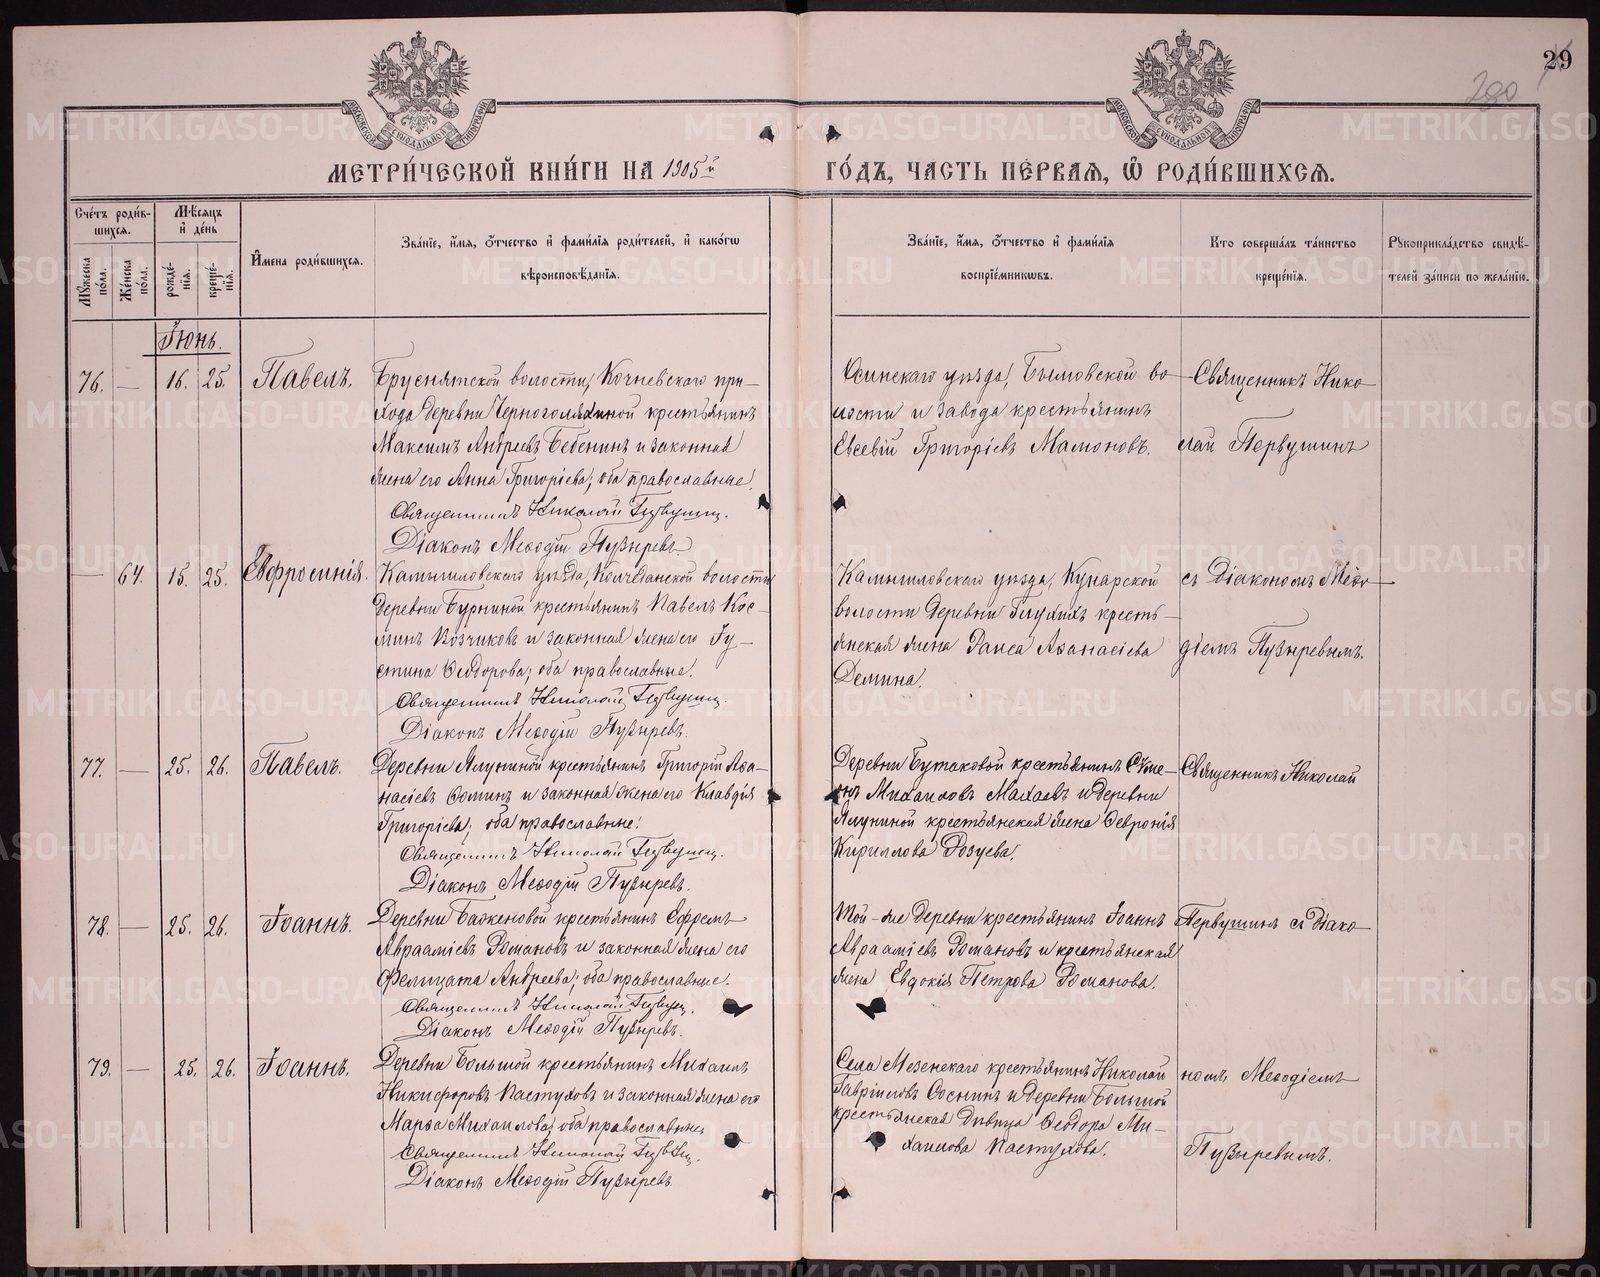 29
290
МОСКОВСКОЙ СѴНОДАЛЬНОЙ ТИПОГРАФІИ
МОСКОВСКОЙ СѴНОДАЛЬНОЙ ТИПОГРАФІИ
МЕТРИ́ЧЕСКОЙ КНИ́ГИ НА 1905й ГО́ДЪ, ЧАСТЬ ПЕ́РВАЯ, Ѡ РОДИ́ВШИХСЯ.
Сче́тъ роди́в-
шихся.
Мꙋ́жеска по́ла.
Же́нска по́ла.
Мѣ́сяцъ
и҆ де́нь
рожде́-
нїя.
креще́-
нїя.
И҆мена роди́вшихся.
Зва́нїе, и҆́мя, ѻ҆́тчество и҆ фами́лїя роди́телей, и҆ како́гѡ
вѣроисповѣ́данїя.
Зва́нїе, и҆́мя, ѻ҆́тчество и҆ фами́лїя
воспрїе́мникѡвъ.
Кто̀ соверша́лъ та́инство
креще́нїя.
Рꙋкоприкла́дство свидѣ́-
телей за́писи по жела́нїю.
Іюнь.
76. — 16. 25. Павелъ.
Бруснятской волости, Кочневскаго при-
хода деревни Черноголяхиной крестьянинъ
Максимъ Андреевъ Бебенинъ и законная
жена его Анна Григоріева, оба православные.
Священникъ Николай Первушин.
Діаконъ Меѳодій Пузыревъ.
Осинскаго уѣзда, Бымовской во-
лости и завода крестьянинъ
Евсевій Григоріевъ Мамоновъ.
Священникъ Нико-
лай Первушинъ
— 64. 15. 25. Евфросинія.
Камышловскаго уѣзда, Колчеданской волости
деревни Бурниной крестьянинъ Павелъ Кос-
минъ Возчиковъ и законная жена его Іу-
стина Ѳеодорова; оба православные.
Священникъ Николай Первушин.
Діаконъ Меѳодій Пузыревъ.
Камышловскаго уѣзда, Кунарской
волости деревни Глухихъ кресть-
янская жена Раиса Аѳанасіева
Демина.
съ Діакономъ Меѳо-
діемъ Пузыревымъ.
77. — 25. 26. Павелъ.
Деревни Ялуниной крестьянинъ Григорій Аѳа-
насіевъ Ѳоминъ и законная жена его Клавдія
Григоріева; оба православные.
Священникъ Николай Первушин.
Діаконъ Меѳодій Пузыревъ.
Деревни Бутаковой крестьянинъ Симе-
онъ Михаиловъ Махаевъ и деревни
Ялуниной крестьянская жена Ѳевронія
Кириллова Розуева.
Священникъ Николай
78. — 25. 26. Іоаннъ.
Деревни Баженовой крестьянинъ Ефремъ
Авраамiевъ Романовъ и законная жена его
Фелицата Андреева; оба православные.
Священникъ Николай Первушин.
Діаконъ Меѳодій Пузыревъ.
Той-же деревни крестьянинъ Іоаннъ
Авраамiевъ Романовъ и крестьянская
жена Евдокія Петрова Романова.
Первушинъ съ Діако-
79. — 25. 26. Іоаннъ.
Деревни Большой крестьянинъ Михаилъ
Никифоровъ Пастуховъ и законная жена его
Марѳа Михаилова, оба православные.
Священникъ Николай Первушин.
Діаконъ Меѳодій Пузыревъ.
Села Мезенскаго крестьянинъ Николай
Гавріиловъ Соснинъ и деревни Большой
крестьянская дѣвица Ѳеодора Ми-
хаилова Пастухова.
номъ Меѳодіемъ
Пузыревымъ.